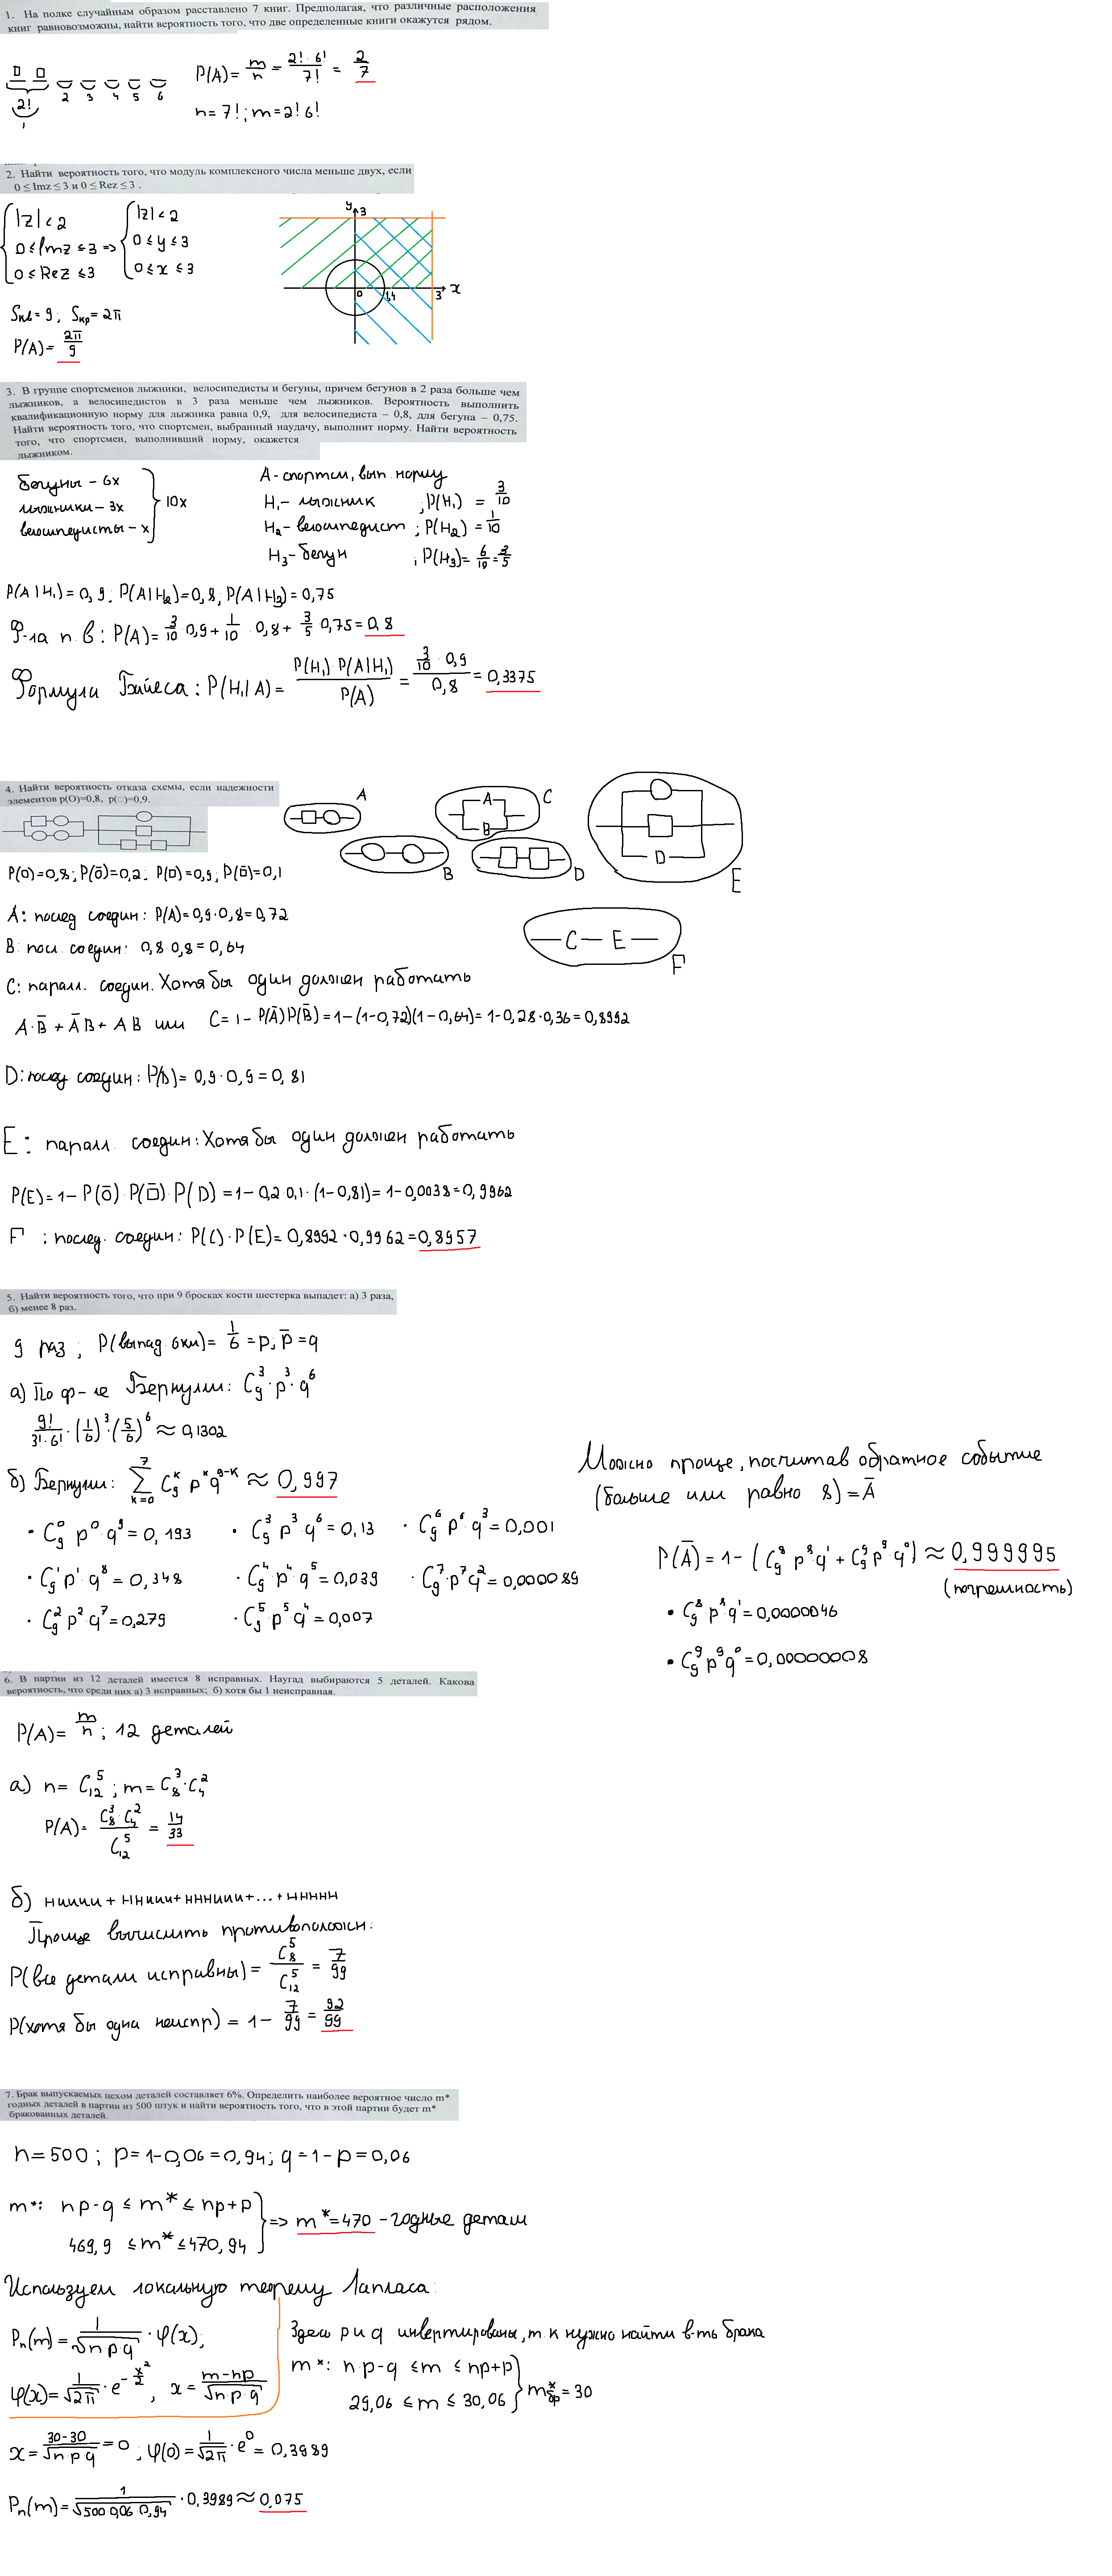 1. На полке случайным образом расставлено 7 книг. Предполагая, что различные расположения
книг равновозможны, найти вероятность того, что две определенные книги окажутся рядом.
2! 2 3 4 5 6
1
P(A) = m/n = 2!·6!/7! = 2/7
n = 7!; m = 2! 6!
2. Найти вероятность того, что модуль комплексного числа меньше двух, если
0 ≤ Imz ≤ 3 и 0 ≤ Rez ≤ 3 .
|z| < 2 |z| < 2
0 ≤ Imz ≤ 3 => 0 ≤ y ≤ 3
0 ≤ Rez ≤ 3 0 ≤ x ≤ 3
y 3
0 1,4 3 x
Sкв = 9; Sкр = 2π
P(A) = 2π/9
3. В группе спортсменов лыжники, велосипедисты и бегуны, причем бегунов в 2 раза больше чем
лыжников, а велосипедистов в 3 раза меньше чем лыжников. Вероятность выполнить
квалификационную норму для лыжника равна 0,9, для велосипедиста – 0,8, для бегуна – 0,75.
Найти вероятность того, что спортсмен, выбранный наудачу, выполнит норму. Найти вероятность
того, что спортсмен, выполнивший норму, окажется
лыжником.
бегуны – 6x
лыжники – 3x
велосипедисты – x
10x
A - спортсм, вып. норму
H₁ - лыжник ; P(H₁) = 3/10
H₂ - велосипедист ; P(H₂) = 1/10
H₃ - бегун ; P(H₃) = 6/10 = 3/5
P(A|H₁) = 0,9; P(A|H₂) = 0,8; P(A|H₃) = 0,75
Ф-ла п.в: P(A) = 3/10 · 0,9 + 1/10 · 0,8 + 3/5 · 0,75 = 0,8
Формула Байеса: P(H₁|A) = P(H₁)·P(A|H₁)/P(A) = (3/10 · 0,9)/0,8 = 0,3375
4. Найти вероятность отказа схемы, если надежности
элементов p(O)=0,8, p(□)=0,9.
A
C
A
B
B
D
D
E
P(O)=0,8; P(Ō)=0,2; P(□)=0,9; P(□̄)=0,1
A: послед соедин: P(A) = 0,9·0,8 = 0,72
B: посл. соедин: 0,8·0,8 = 0,64
— C — E —
F
C: паралл. соедин. Хотя бы один должен работать
A·B̄ + ĀB + AB или C = 1 - P(Ā)P(B̄) = 1-(1-0,72)(1-0,64) = 1-0,28·0,36 = 0,8992
D: послед соедин: P(D) = 0,9·0,9 = 0,81
E: паралл. соедин: Хотя бы один должен работать
P(E) = 1 - P(Ō)·P(□̄)·P(D) = 1-0,2·0,1·(1-0,81) = 1-0,0038 = 0,9962
F ; послед. соедин: P(C)·P(E) = 0,8992·0,9962 = 0,8957
5. Найти вероятность того, что при 9 бросках кости шестерка выпадет: а) 3 раза,
б) менее 8 раз.
9 раз ; P(выпад. 6ки) = 1/6 = p; p̄ = q
а) По ф-ле Бернулли: C₉³·p³·q⁶
9!/(3!·6!)·(1/6)³·(5/6)⁶ ≈ 0,1302
б) Бернулли: ∑ k=0 7 C₉ᵏ pᵏ q⁹⁻ᵏ ≈ 0,997
• C₉⁰ p⁰ q⁹ = 0,193 • C₉³ p³ q⁶ = 0,13 • C₉⁶ p⁶ q³ = 0,001
• C₉¹ p¹ q⁸ = 0,348 • C₉⁴ p⁴ q⁵ = 0,039 • C₉⁷ p⁷ q² = 0,000089
• C₉² p² q⁷ = 0,279 • C₉⁵ p⁵ q⁴ = 0,007
Можно проще, посчитав обратное событие
(больше или равно 8) = Ā
P(Ā) = 1 - (C₉⁸ p⁸ q¹ + C₉⁹ p⁹ q⁰) ≈ 0,999995
(погрешность)
• C₉⁸ p⁸ q¹ = 0,0000046
• C₉⁹ p⁹ q⁰ = 0,00000008
6. В партии из 12 деталей имеется 8 исправных. Наугад выбираются 5 деталей. Какова
вероятность, что среди них а) 3 исправных; б) хотя бы 1 неисправная.
P(A) = m/n ; 12 деталей
а) n = C₁₂⁵ ; m = C₈³·C₄²
P(A) = C₈³·C₄²/C₁₂⁵ = 14/33
б) нииии + ннииi + нннии + ... + ннннн
Проще вычислить противоположн:
P(все детали исправны) = C₈⁵/C₁₂⁵ = 7/99
P(хотя бы одна неиспр) = 1 - 7/99 = 92/99
7. Брак выпускаемых цехом деталей составляет 6%. Определить наиболее вероятное число m*
годных деталей в партии из 500 штук и найти вероятность того, что в этой партии будет m*
бракованных деталей.
n = 500 ; p = 1-0,06 = 0,94; q = 1-p = 0,06
m*: np-q ≤ m* ≤ np+p
469,9 ≤ m* ≤ 470,94
=> m* = 470 - годные детали
Используем локальную теорему Лапласа:
Pₙ(m) = 1/√npq · φ(x);
φ(x) = 1/√2π · e^(-x²/2), x = (m-np)/√npq
Здесь p и q инвертированы, т.к нужно найти в-ть брака
m*: np-q ≤ m ≤ np+p
29,06 ≤ m ≤ 30,06
m*бр = 30
x = (30-30)/√npq = 0 ; φ(0) = 1/√2π · e⁰ = 0,3989
Pₙ(m) = 1/√500·0,06·0,94 · 0,3989 ≈ 0,075